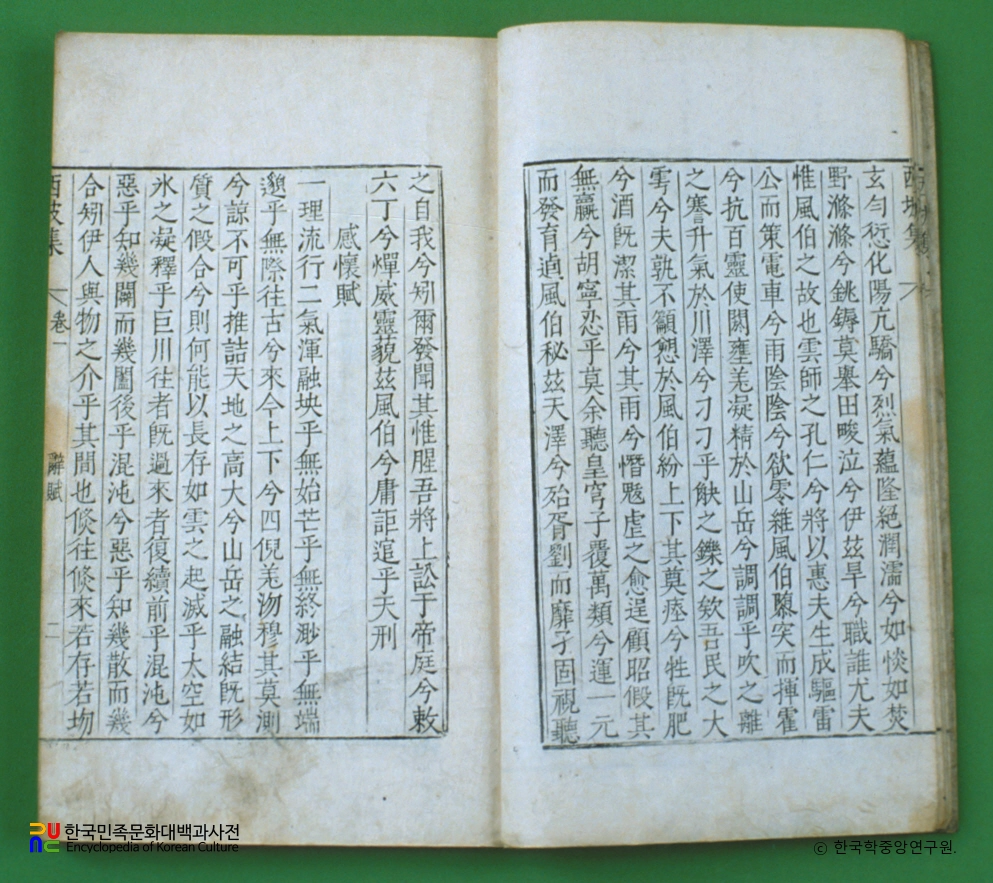 玄勻愆化陽亢驕兮烈氣蘊隆絕潤濡兮如惔如焚
野滌滌兮銚鎛莫舉田畯泣兮伊茲旱兮職誰尤夫
惟風伯之故也雲師之孔仁兮將以惠夫生成驅雷
公而策電車兮雨陰陰兮欲零維風伯隳突而揮霍
兮抗百靈使閼壅羌凝精於山岳兮調調乎吹之離
之騫升氣於川澤兮刁刁乎觖之鑠之欸吾民之大
雩兮夫孰不籲愬於風伯紛上下其奠瘞兮牲旣肥
兮酒旣潔其雨兮其雨兮憯魃虐之愈逞顧昭假其
無贏兮胡寧忍乎莫余聽皇穹子覆萬類兮運一元
而發育逌風伯秘茲天澤兮殆胥劉而靡孑固視聽
之自我兮矧爾發聞其惟腥吾將上訟于帝庭兮敕
六丁兮燀威靈藐茲風伯兮庸詎逭乎天刑
感懷賦
一理流行二氣渾融坱乎無始芒乎無終渺乎無端
邈乎無際往古兮來今上下兮四倪羌沕穆其莫測
兮諒不可乎推詰天地之高大兮山岳之融結旣形
質之假合兮則何能以長存如雲之起滅乎太空如
氷之凝釋乎巨川往者旣過來者復續前乎混沌兮
惡乎知幾闢而幾闔後乎混沌兮惡乎知幾散而幾
合矧伊人與物之介乎其間也倐往倐來若存若沕
西坡集 卷一 辭賦 二
한국민족문화대백과사전
Encyclopedia of Korean Culture
ⓒ 한국학중앙연구원.